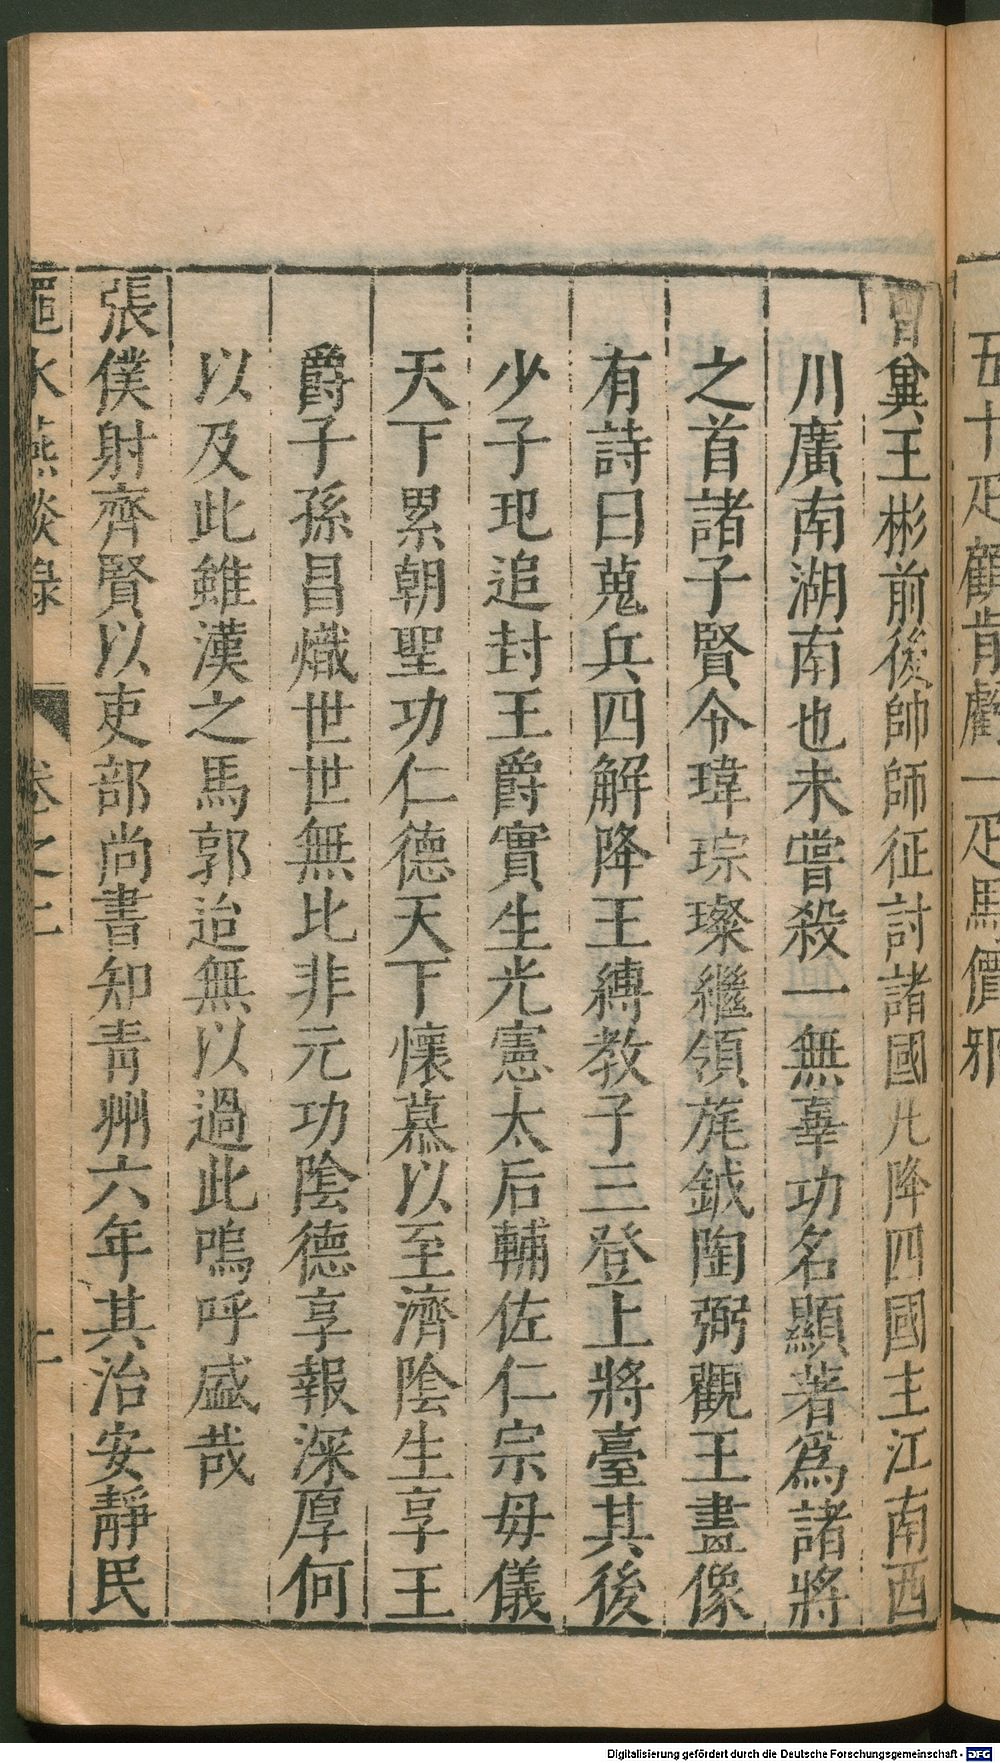 五十疋顧肯虧一疋馬價邪
曹冀王彬前後帥師征討諸國凡降四國主江南西
川廣南湖南也未嘗殺一無辜功名顯著為諸將
之首諸子賢令瑋琮璨繼領旄鉞陶弼觀王畫像
有詩曰蒐兵四解降王縛教子三登上將臺其後
少子玘追封王爵實生光憲太后輔佐仁宗母儀
天下累朝聖功仁德天下懷慕以至濟陰生享王
爵子孫昌熾世世無比非元功陰德享報深厚何
以及此雖漢之馬郭迨無以過此嗚呼盛哉
張僕射齊賢以吏部尚書知青州六年其治安靜民
澠水燕談錄 卷之二 二
Digitalisierung gefördert durch die Deutsche Forschungsgemeinschaft - DFG